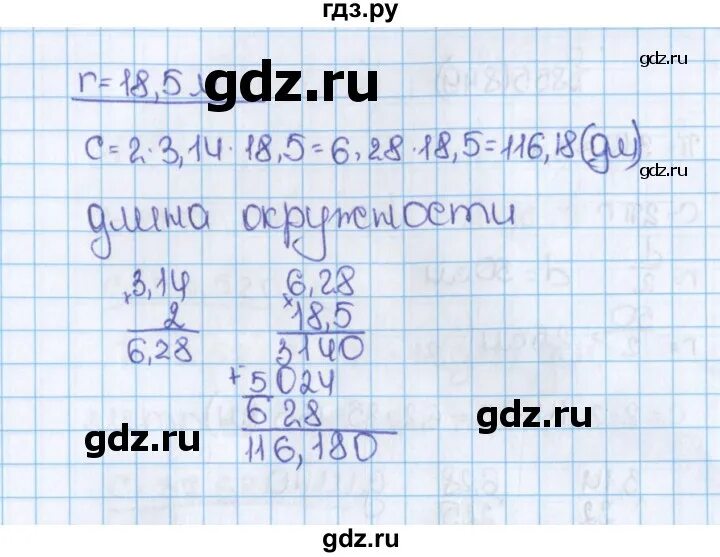 гдз.ру
gdz.ru
r=18,5
gdz.ru
C=2·3,14·18,5=6,28·18,5=116,18(дм)
gdz.ru
длина окружности
×3,14
2
6,28
6,28
×18,5
3140
+5024
628
116,180
gdz.ru
gdz.ru
gdz.ru